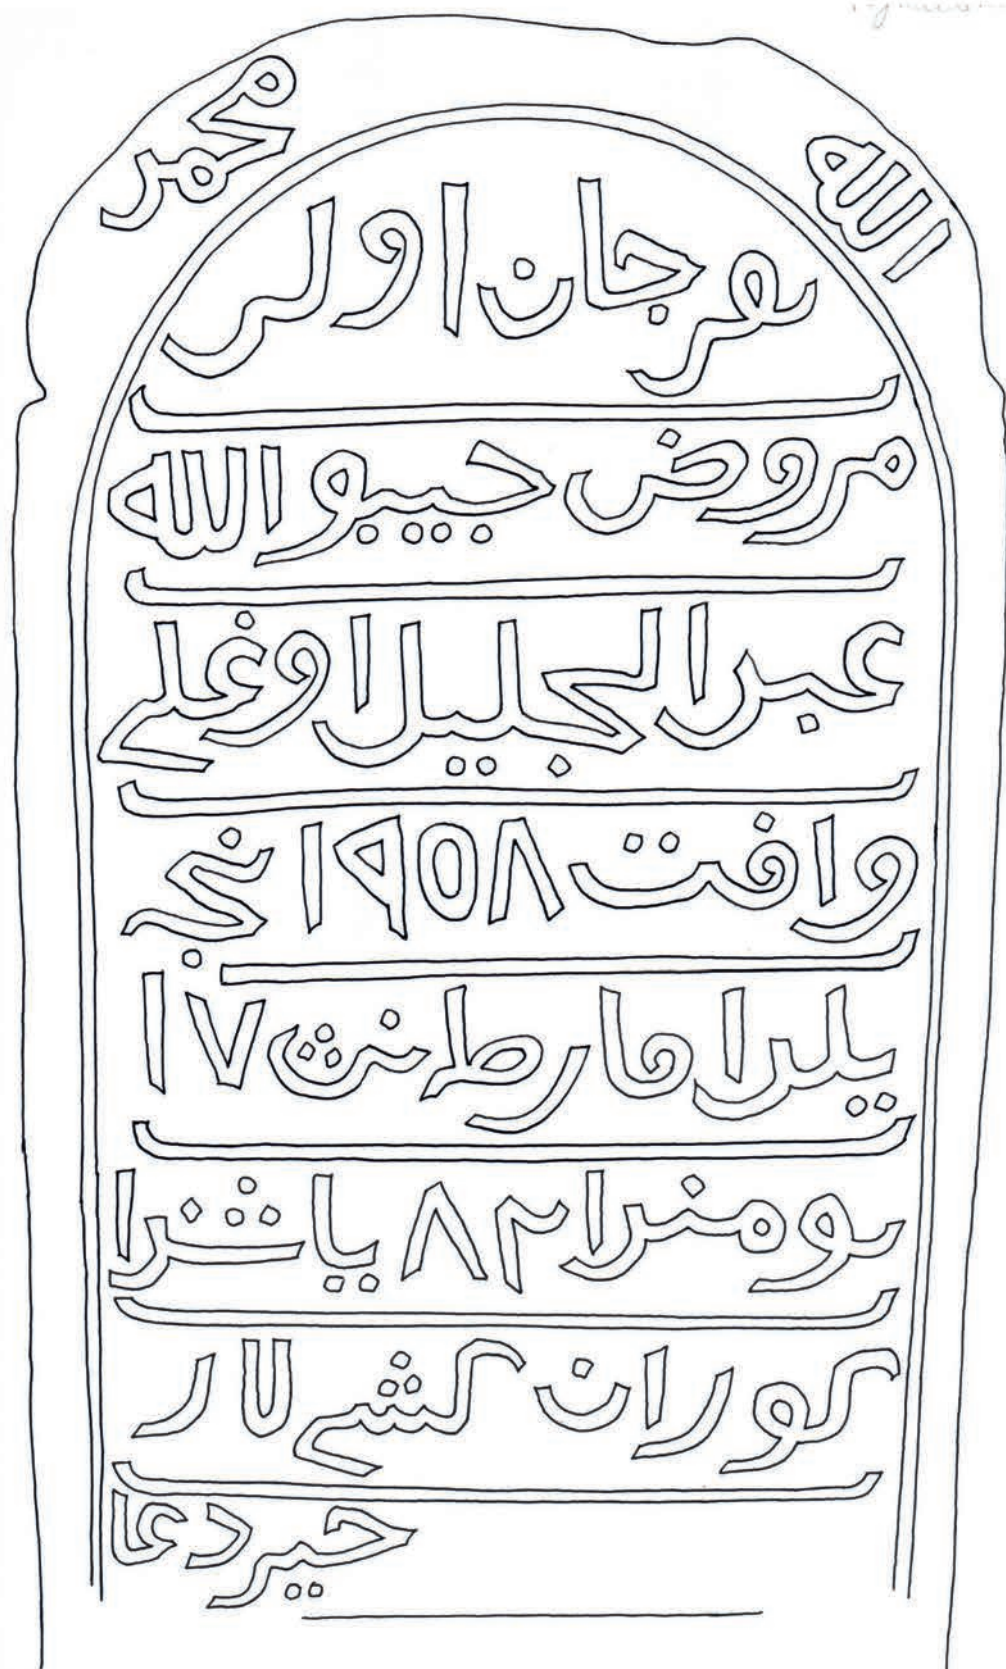 الله محمد
جان
مروض حبيبو الله
عبد الجليل اوغلے
وافت ١٩٥٨ نجے
يلدا مارطنڭ ١٧
ىومندا ٨٢ ياشندا
كوران كشےلار
حير دعا